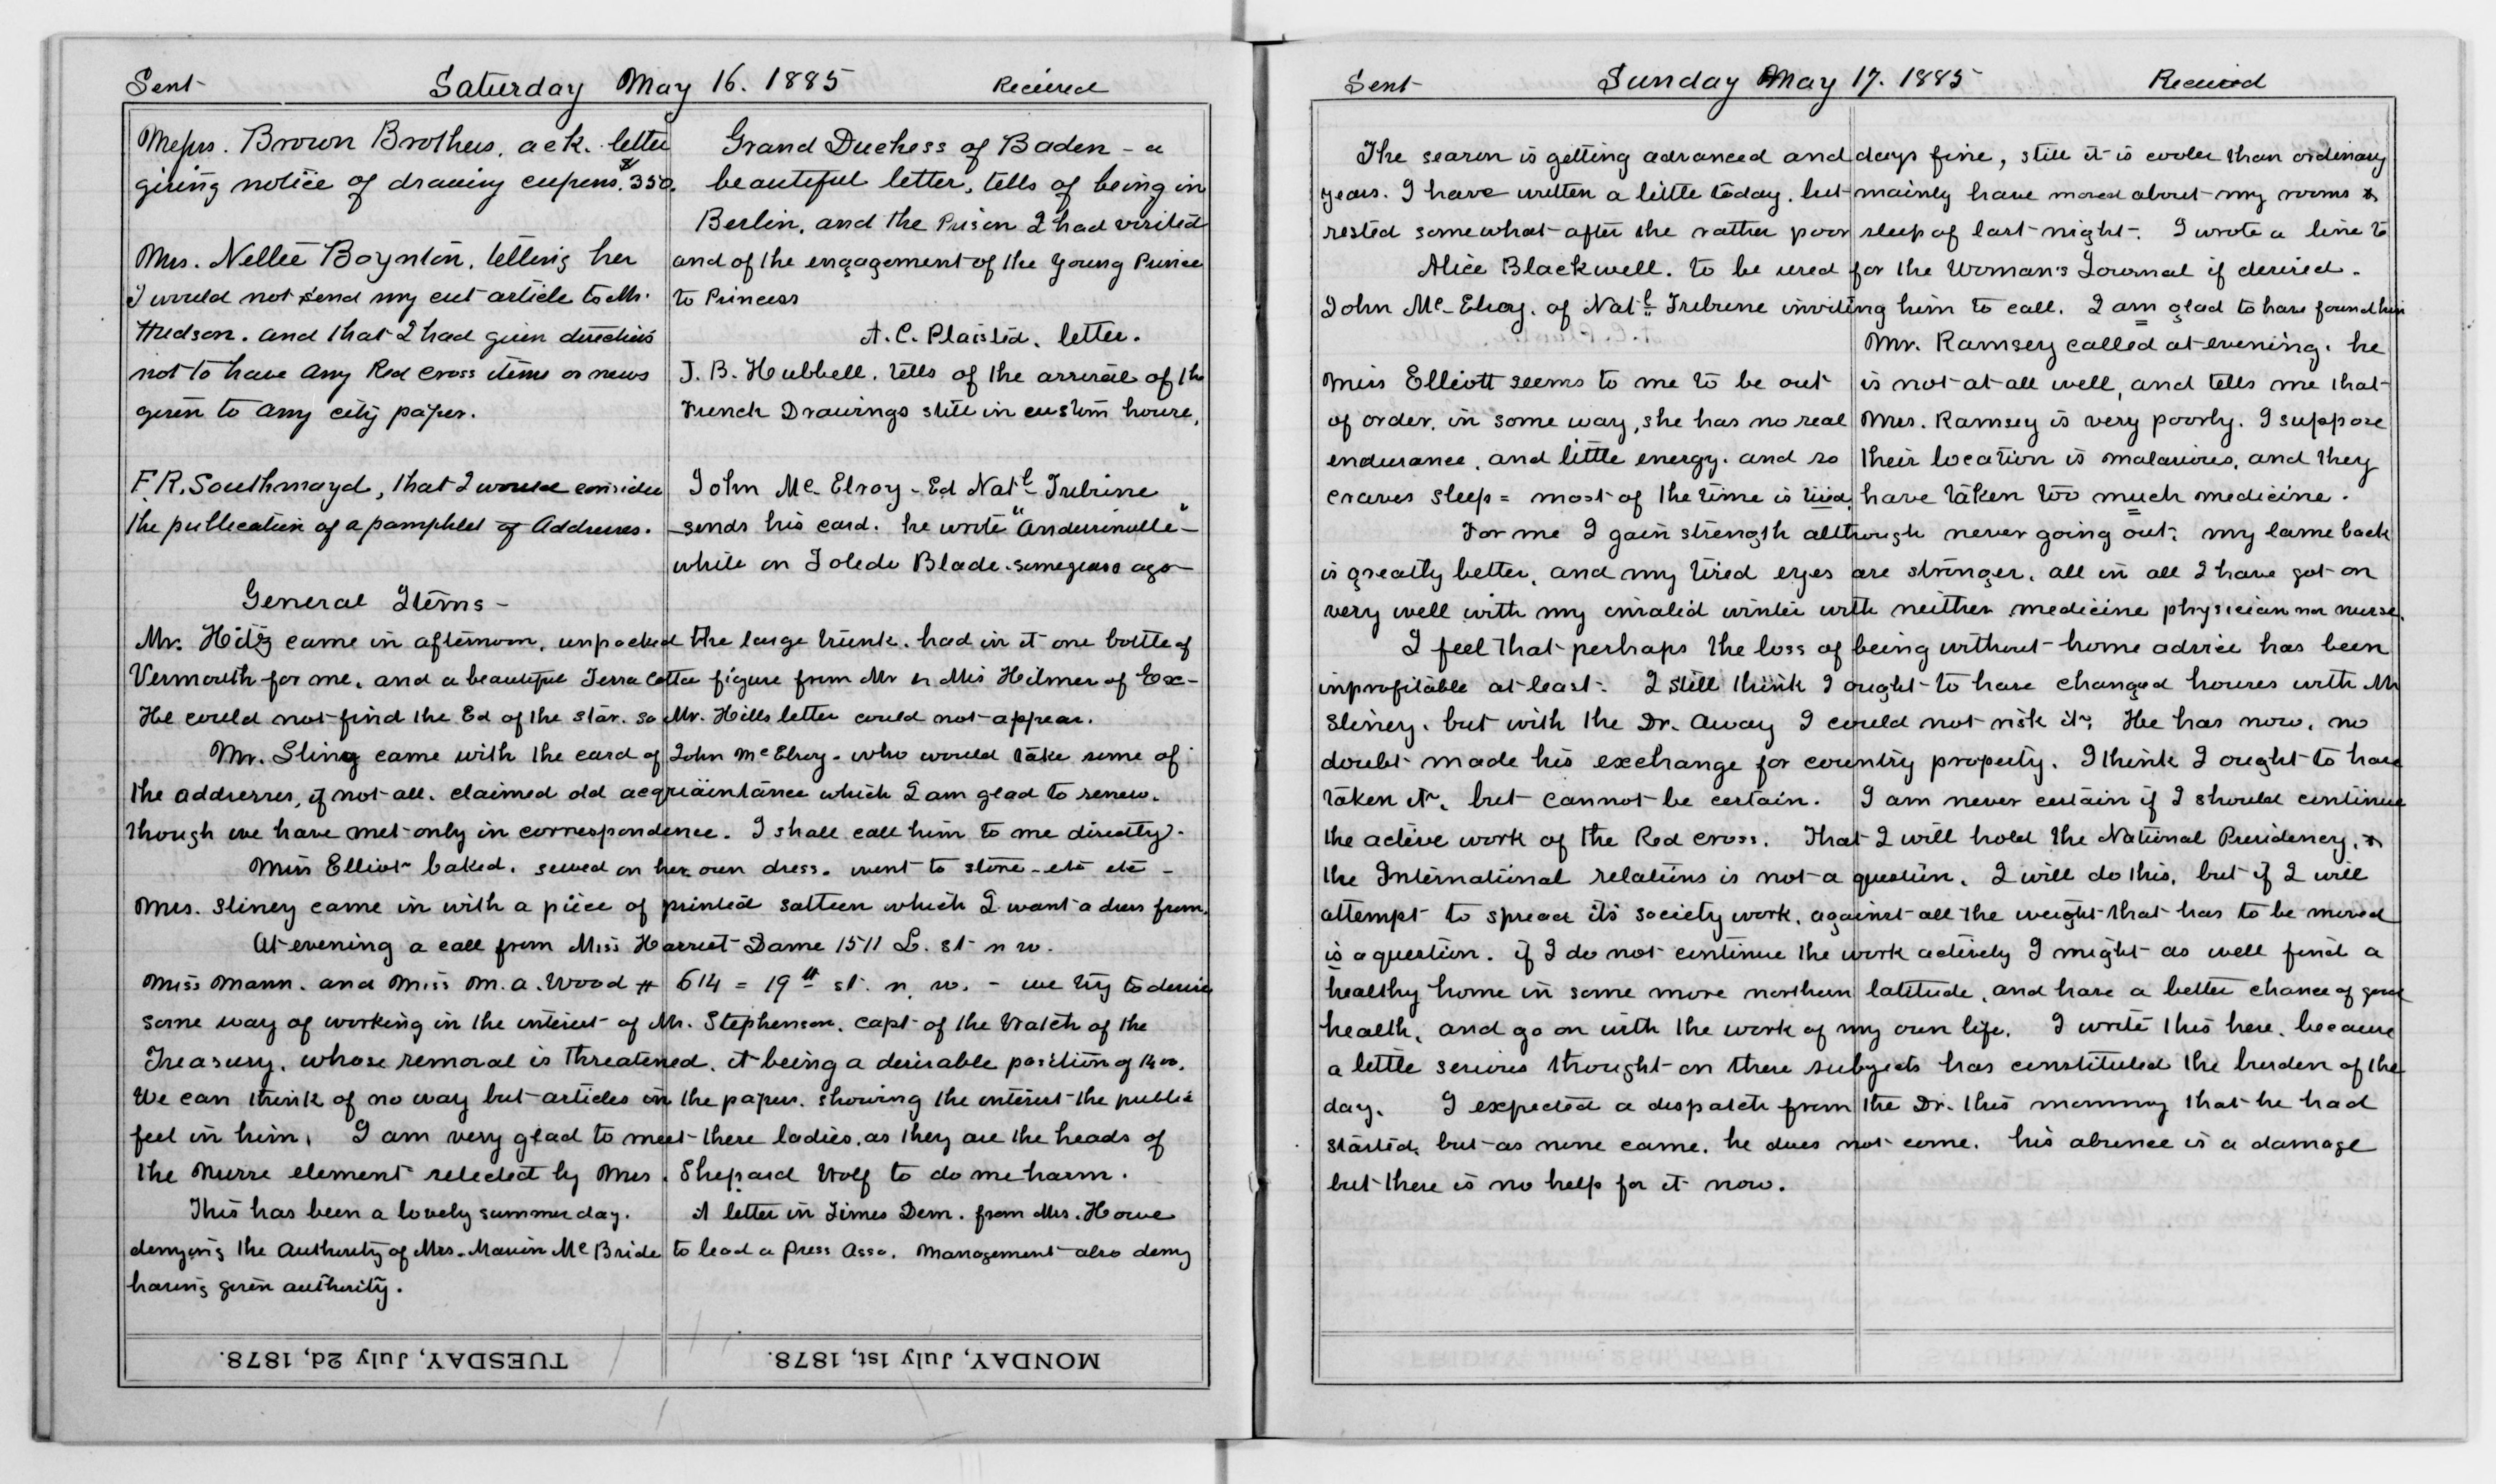 Sent Saturday May 16. 1885 Recieved
Messrs. Brown Brothers, ack. letter
giving notice of drawing cupons. $350.
Mrs. Nellie Boynton, telling her
I would not send my cut article to Mr.
Hudson. and that I had given directions
not to have any Red Cross items or news
given to any city paper.
F. R. Southmayd, that I would consider
the publication of a pamphlet of Addresses.
Grand Duchess of Baden - a
beautiful letter, tells of being in
Berlin, and the Prison I had visited
and of the engagement of the Young Prince
to Princess
A. C. Plaisted. letter.
J. B. Hubbell. tells of the arrival of the
French Drawings still in custom house,
John Mc Elroy - Ed Natl Tribune
sends his card. he wrote "Andersinville"
while on Toledo Blade. some years ago
General Items -
Mr. Hitz came in afternoon, unpacked the large trunk. had in it one bottle of
Vermouth for me. and a beautiful Terra Cotta figure from Mr & Mis Hilmer of Ex-
He could not find the Ed of the Star. so Mr. Hills letter could not appear.
Mr. Sling came with the card of John McElroy. who would take some of
the addresses, if not all. claimed old acquaintance which I am glad to renew.
though we have met only in correspondence. I shall call him to me directly.
Miss Elliot baked. sewed on her own dress. went to store - etc etc -
Mrs. Sliney came in with a piece of printed satteen which I want a dress from.
At evening a call from Miss Harriet Dame 1511 L. st n w.
Miss Mann. and Miss M. A. Wood # 614 = 19th st. n. w. - we try to devise
some way of working in the interest of Mr. Stephenson. Capt of the Watch of the
Treasury, whose removal is threatened. it being a desirable position of 1400.
We can think of no way but articles in the papers. showing the interest the public
feel in him. I am very glad to meet these ladies, as they are the heads of
the Nurse element selected by Mrs. Shepard Wolf to do me harm.
This has been a lovely summer day. A letter in Times Dem. from Mrs. Howe
denying the Authority of Mrs. Marion Mc Bride to lead a Press Asso. Management also deny
having given authority.
TUESDAY, July 2d, 1878. MONDAY, July 1st, 1878.
Sent Sunday May 17. 1885 Recieved
The season is getting advanced and days fine, still it is cooler than ordinary
years. I have written a little today. but mainly have moved about my rooms &
rested somewhat after the rather poor sleep of last night. I wrote a line to
Alice Blackwell. to be used for the Woman's Journal if desired.
John Mc Elroy. of Natl Tribune inviting him to call. I am glad to have found him
Miss Elliott seems to me to be out
of order. in some way, she has no real
endurance, and little energy. and so
craves sleep = most of the time is tired.
Mr. Ramsey called at evening. he
is not at all well, and tells me that
Mrs. Ramsey is very poorly. I suppose
their location is malarious, and they
have taken too much medicine.
For me I gain strength although never going out. my lame back
is greatly better, and my tired eyes are stronger. all in all I have got on
very well with my invalid winter with neither medicine physician nor nurse.
I feel that perhaps the loss of being without home advice has been
inprofitable at least. I still think I ought to have changed houses with Mr
Sliney. but with the Dr. away I could not risk it. He has now. no
doubt made his exchange for country property. I think I ought to have
taken it. but cannot be certain. I am never certain if I should continue
the active work of the Red Cross. That I will hold the National Presidency, &
the International relations is not a question. I will do this, but if I will
attempt to spread its society work. against all the weight that has to be moved
is a question. if I do not continue the work actively I might as well find a
healthy home in some more northern latitude, and have a better chance of good
health, and go on with the work of my own life. I write this here. because
a little serious thought on these subjects has constituted the burden of the
day. I expected a despatch from the Dr. this morning that he had
started, but as none came. he does not come. his absence is a damage
but there is no help for it now.